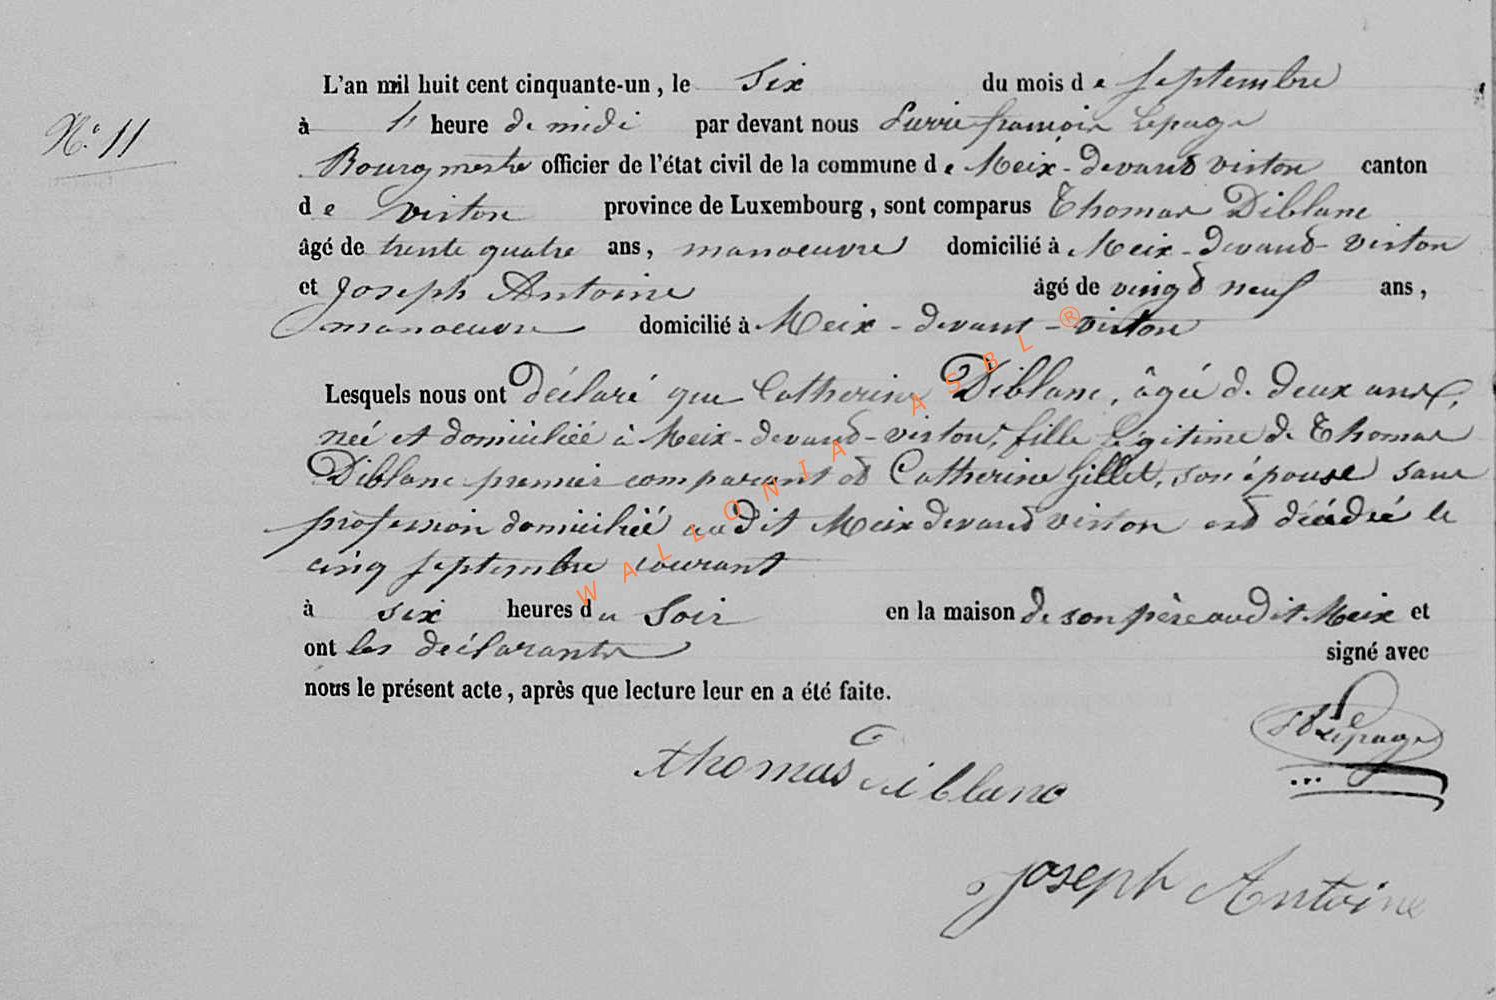 N.° 11
L'an mil huit cent cinquante-un, le Six du mois de Septembre
à l' heure de midi par devant nous Pierre françois Lepage
Bourgmestre officier de l'état civil de la commune de Meix-devand virton canton
de virton province de Luxembourg, sont comparus Thomas Diblanc
âgé de trente quatre ans, manoeuvre domicilié à Meix-devand-virton
et Joseph Antoine âgé de vingd neuf ans,
manoeuvre domicilié à Meix-devant-virton
Lesquels nous ont déclaré que Catherine Diblanc, âgée de deux ans,
neé et domiciliéé à Meix-devand-virton, fille légitime de Thomas
Diblanc premier comparant ed Catherine Gillet, son épouse sans
profession domiciliéé audit Meix devand virton esd décédéé le
cinq septembre courant
à six heures du Soir en la maison de son père audit Meix et
ont les déclarants signé avec
nous le présent acte, après que lecture leur en a été faite.
Lepage
thomas diblanc
Joseph Antoine
WALLONIA ASBL ®